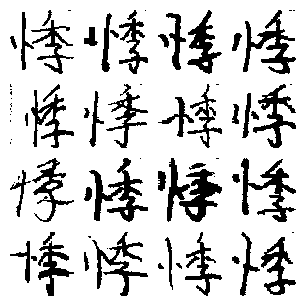 悸悸悸悸
悸悸悸悸
悸悸悸悸
悸悸悸悸